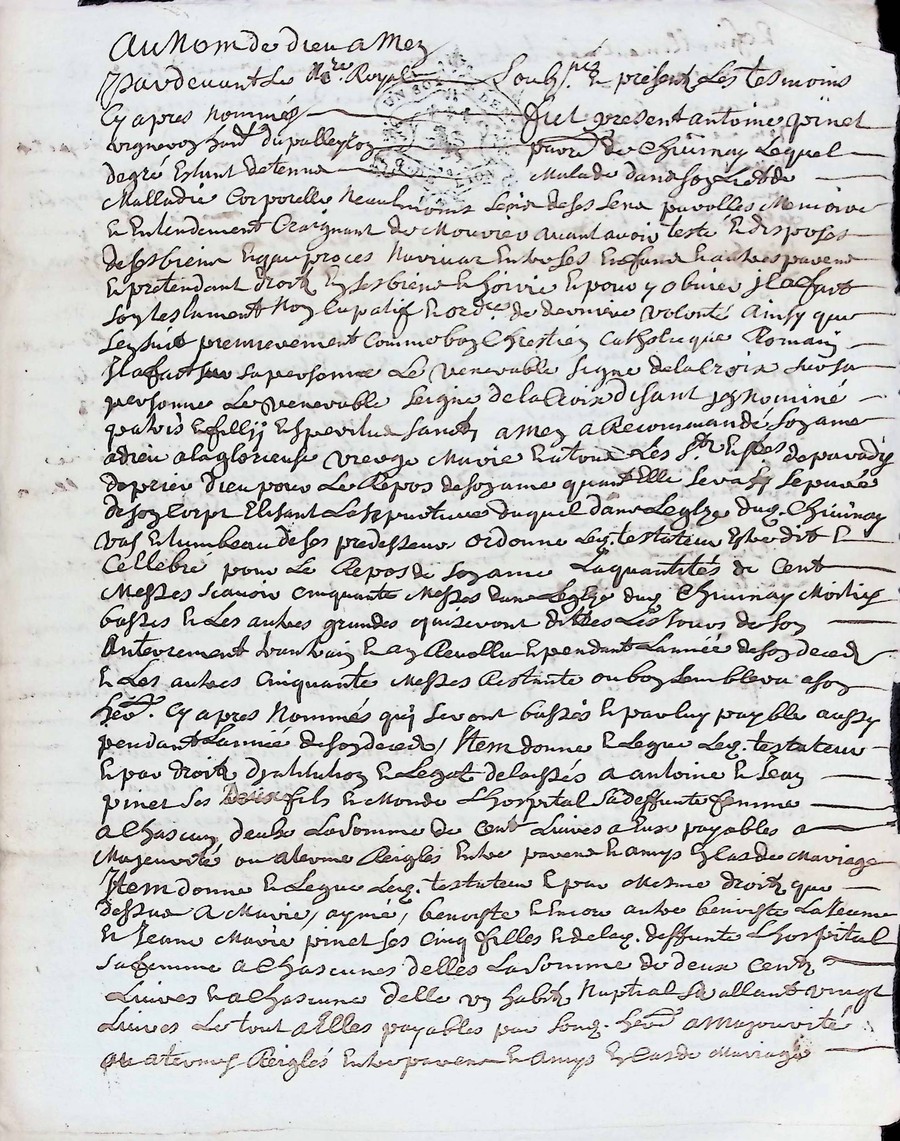 Au Nom de dieu amen
Pardevant Le No.re Royal Soubsné Et présent Les tesmoins
Cy apres Nommés fut present antoine pinet
vigneron hānt du palleyron parre de Chiinnay Lequel
degré Estant detenu Malade dans son Lict de
Malladie Corporelle Neaulmoins Sein de ses Sens parolles Memoire
Et Entendement Craignant de Mourir avant avoir testé Et disposer
de ses biens Et que proces Narrivat Entre ses Enfans Et autres parens
Et pretendant droit En ses biens Et hoirie Et pour y obvier Il a fait
Son testament Noncupatif Et ord.re de derniere volonté Ainsy que
Sensuit premierement Comme bon Chrestien Catholique Romain
Il a fait sur sa personne Le venerable Signe de la Croix sur sa
personne Le venerable Seigne de la Croix disant In Nominé
patris Et fillij Et spiritus Sancti amen a Recommandé Son ame
a dieu a la glorieuse vierge Marie Et a tous Les S.ts Et S.tes de paradis
de prier dieu pour Le Repos de son ame quant Elle sera separé
de son Corps Elisant La sepulture duquel dans Leglze dud. Chiinnay
vas Et tumbeau de ses predesseurs ordonne Led. testateur Estre dit Et
Cellebré pour Le Repos de son ame La quantités de Cent
Messes Scavoir Cinquante Messes dans Leglze dud Chiinnay Moitier
basses Et Les autres grandes qui seront dittes Les Jours de son
Anterrement quarantain Et an Revollu Et pendant Lannée de son deced
Et Les autres Cinquante Messes Restante ou bon Semblera a son
hér. Cy apres Nommés qui seront bassés Et par luy payable aussy
pendant Lannée de son deced, Item donne Et Legue Led. testateur
Et par droit dinstitution Et Legat delaissés a antoine Et Jean
pinet Ses deux fils Et Monde Lhospital Sa deffunte femme
a Chascun deulx La Somme de Cent Livres a Eux payables a
Majeurité ou aterme Reiglés Entre parens Et amys En Cas de Mariage
Item donne Et Legue Led. testateur Et par Mesme droit que
dessus a Marie, aymé, benoiste Et Encore autre benoiste La Jeune
Et Jeane Marie pinet ses Cinq filles Et de lad. deffunte Lhospital
sa femme a Chascunes delles La Somme de deux Cents
Livres Et a Chascune delle un habit Nuptial Se vallant vingt
Livres Le tout a Elles payables par Sond. hér. a Majourité
ou a termes Reiglés Entre parens Et amys En Cas de Mariage